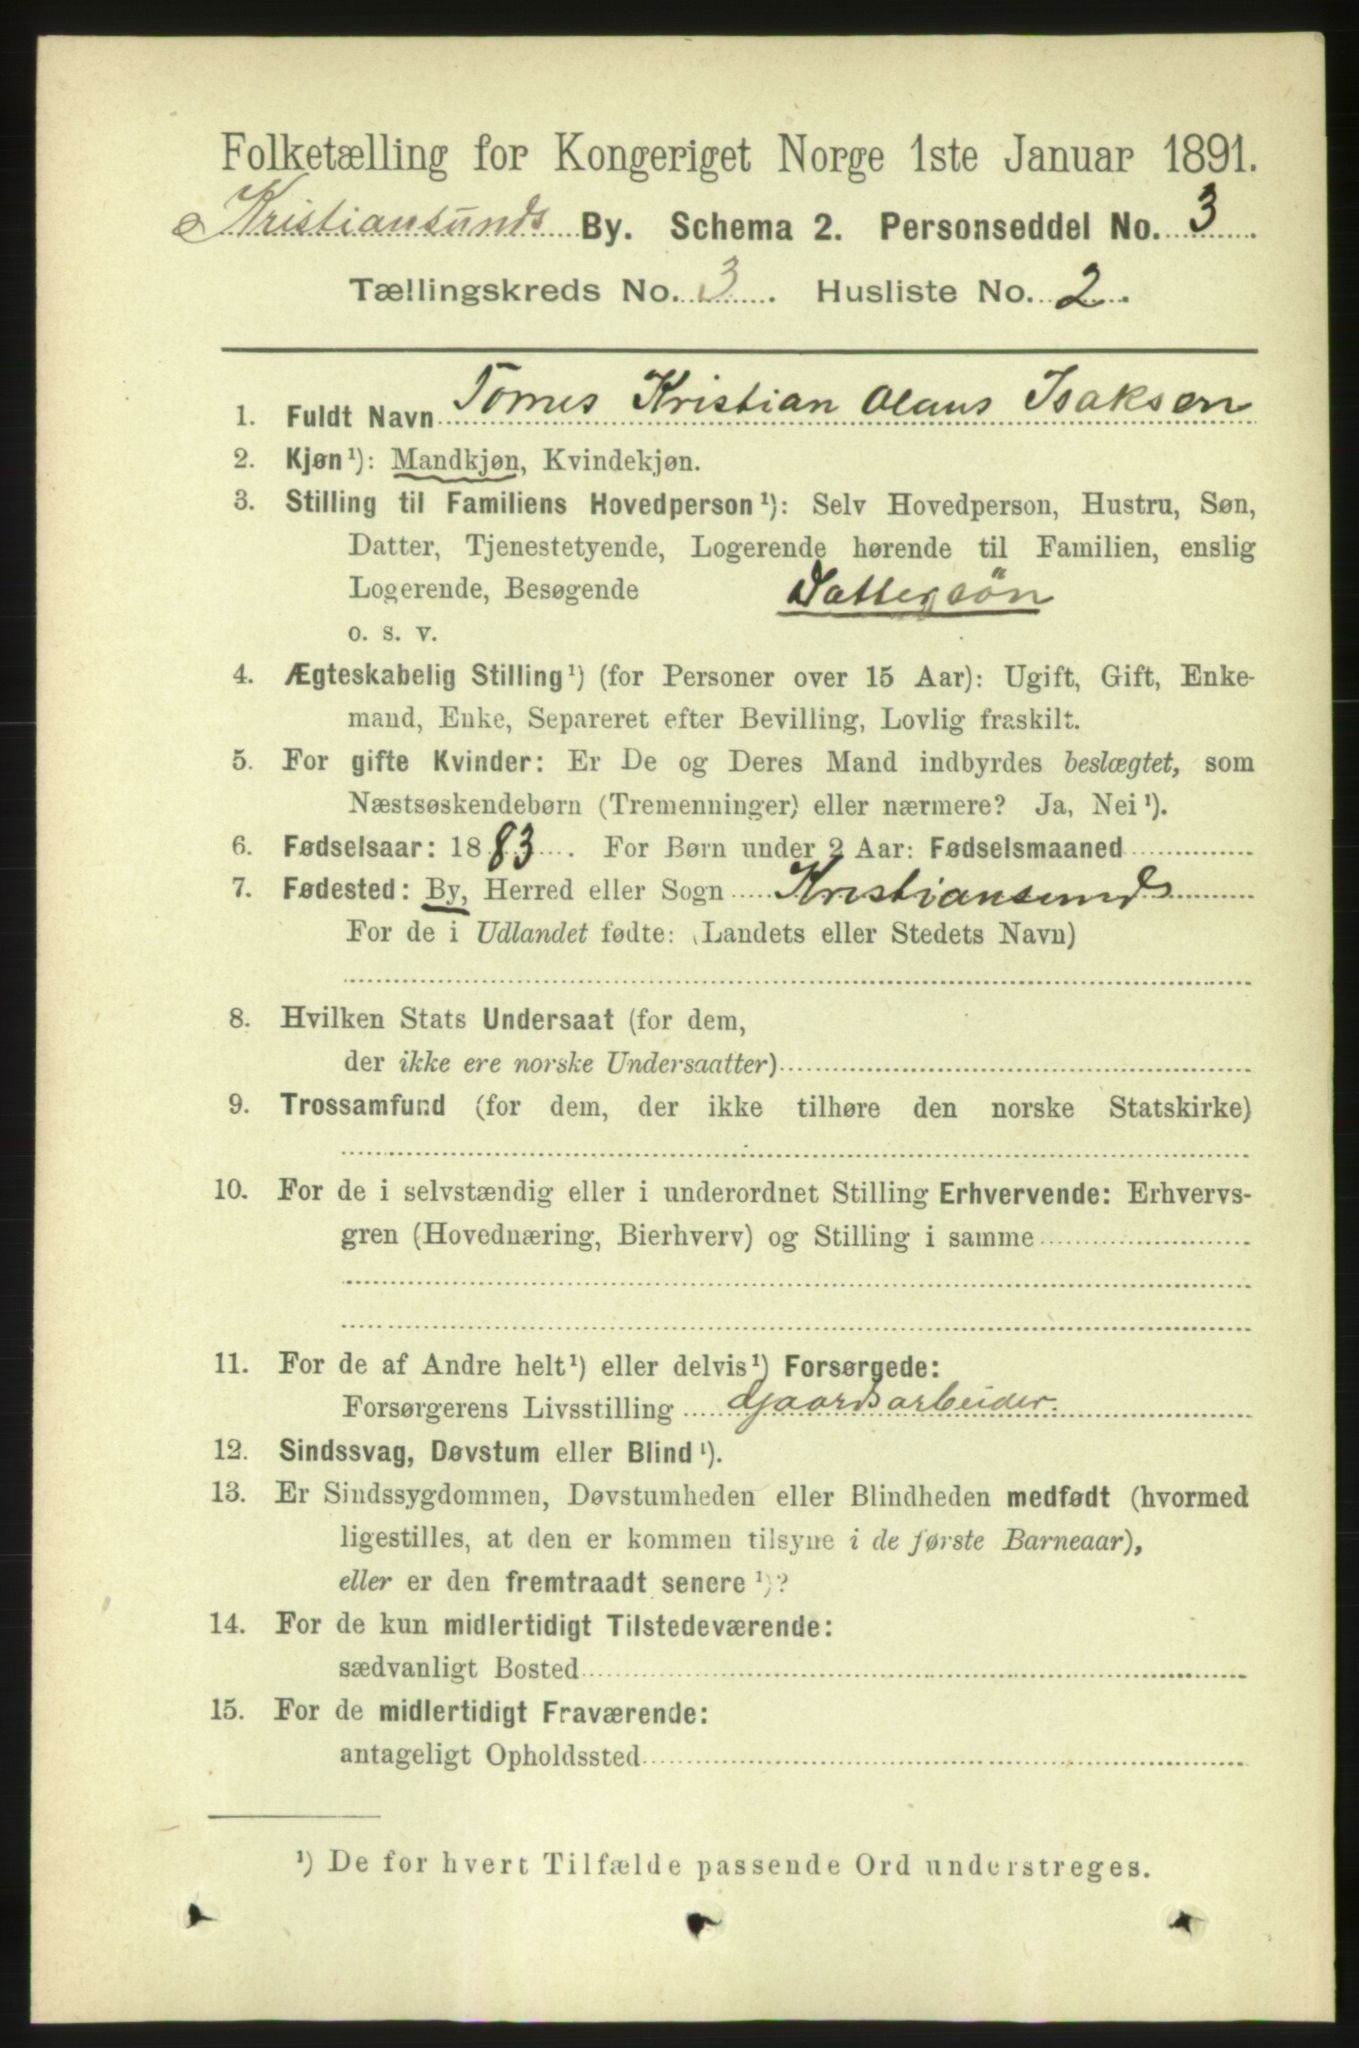 Folketælling for Kongeriget Norge 1ste Januar 1891.
Kristiansunds By. Schema 2. Personseddel No. 3.
Tællingskreds No. 3. Husliste No. 2.
1. Fuldt Navn Tomas Kristian Olaus Isaksen
2. Kjøn¹): Mandkjøn, Kvindekjøn.
3. Stilling til Familiens Hovedperson¹): Selv Hovedperson, Hustru, Søn,
Datter, Tjenestetyende, Logerende hørende til Familien, enslig
Logerende, Besøgende Dattersön
o. s. v.
4. Ægteskabelig Stilling¹) (for Personer over 15 Aar): Ugift, Gift, Enke-
mand, Enke, Separeret efter Bevilling, Lovlig fraskilt.
5. For gifte Kvinder: Er De og Deres Mand indbyrdes beslægtet, som
Næstsøskendebørn (Tremenninger) eller nærmere? Ja, Nei¹).
6. Fødselsaar: 1883. For Børn under 2 Aar: Fødselsmaaned
7. Fødested: By, Herred eller Sogn Kristiansund
For de i Udlandet fødte: (Landets eller Stedets Navn)
8. Hvilken Stats Undersaat (for dem,
der ikke ere norske Undersaatter)
9. Trossamfund (for dem, der ikke tilhøre den norske Statskirke)
10. For de i selvstændig eller i underordnet Stilling Erhvervende: Erhvervs-
gren (Hovednæring, Bierhverv) og Stilling i samme
11. For de af Andre helt¹) eller delvis¹) Forsørgede:
Forsørgerens Livsstilling Gaardsarbeider.
12. Sindssvag, Døvstum eller Blind¹).
13. Er Sindssygdommen, Døvstumheden eller Blindheden medfødt (hvormed
ligestilles, at den er kommen tilsyne i de første Barneaar),
eller er den fremtraadt senere¹)?
14. For de kun midlertidigt Tilstedeværende:
sædvanligt Bosted
15. For de midlertidigt Fraværende:
antageligt Opholdssted
¹) De for hvert Tilfælde passende Ord understreges.